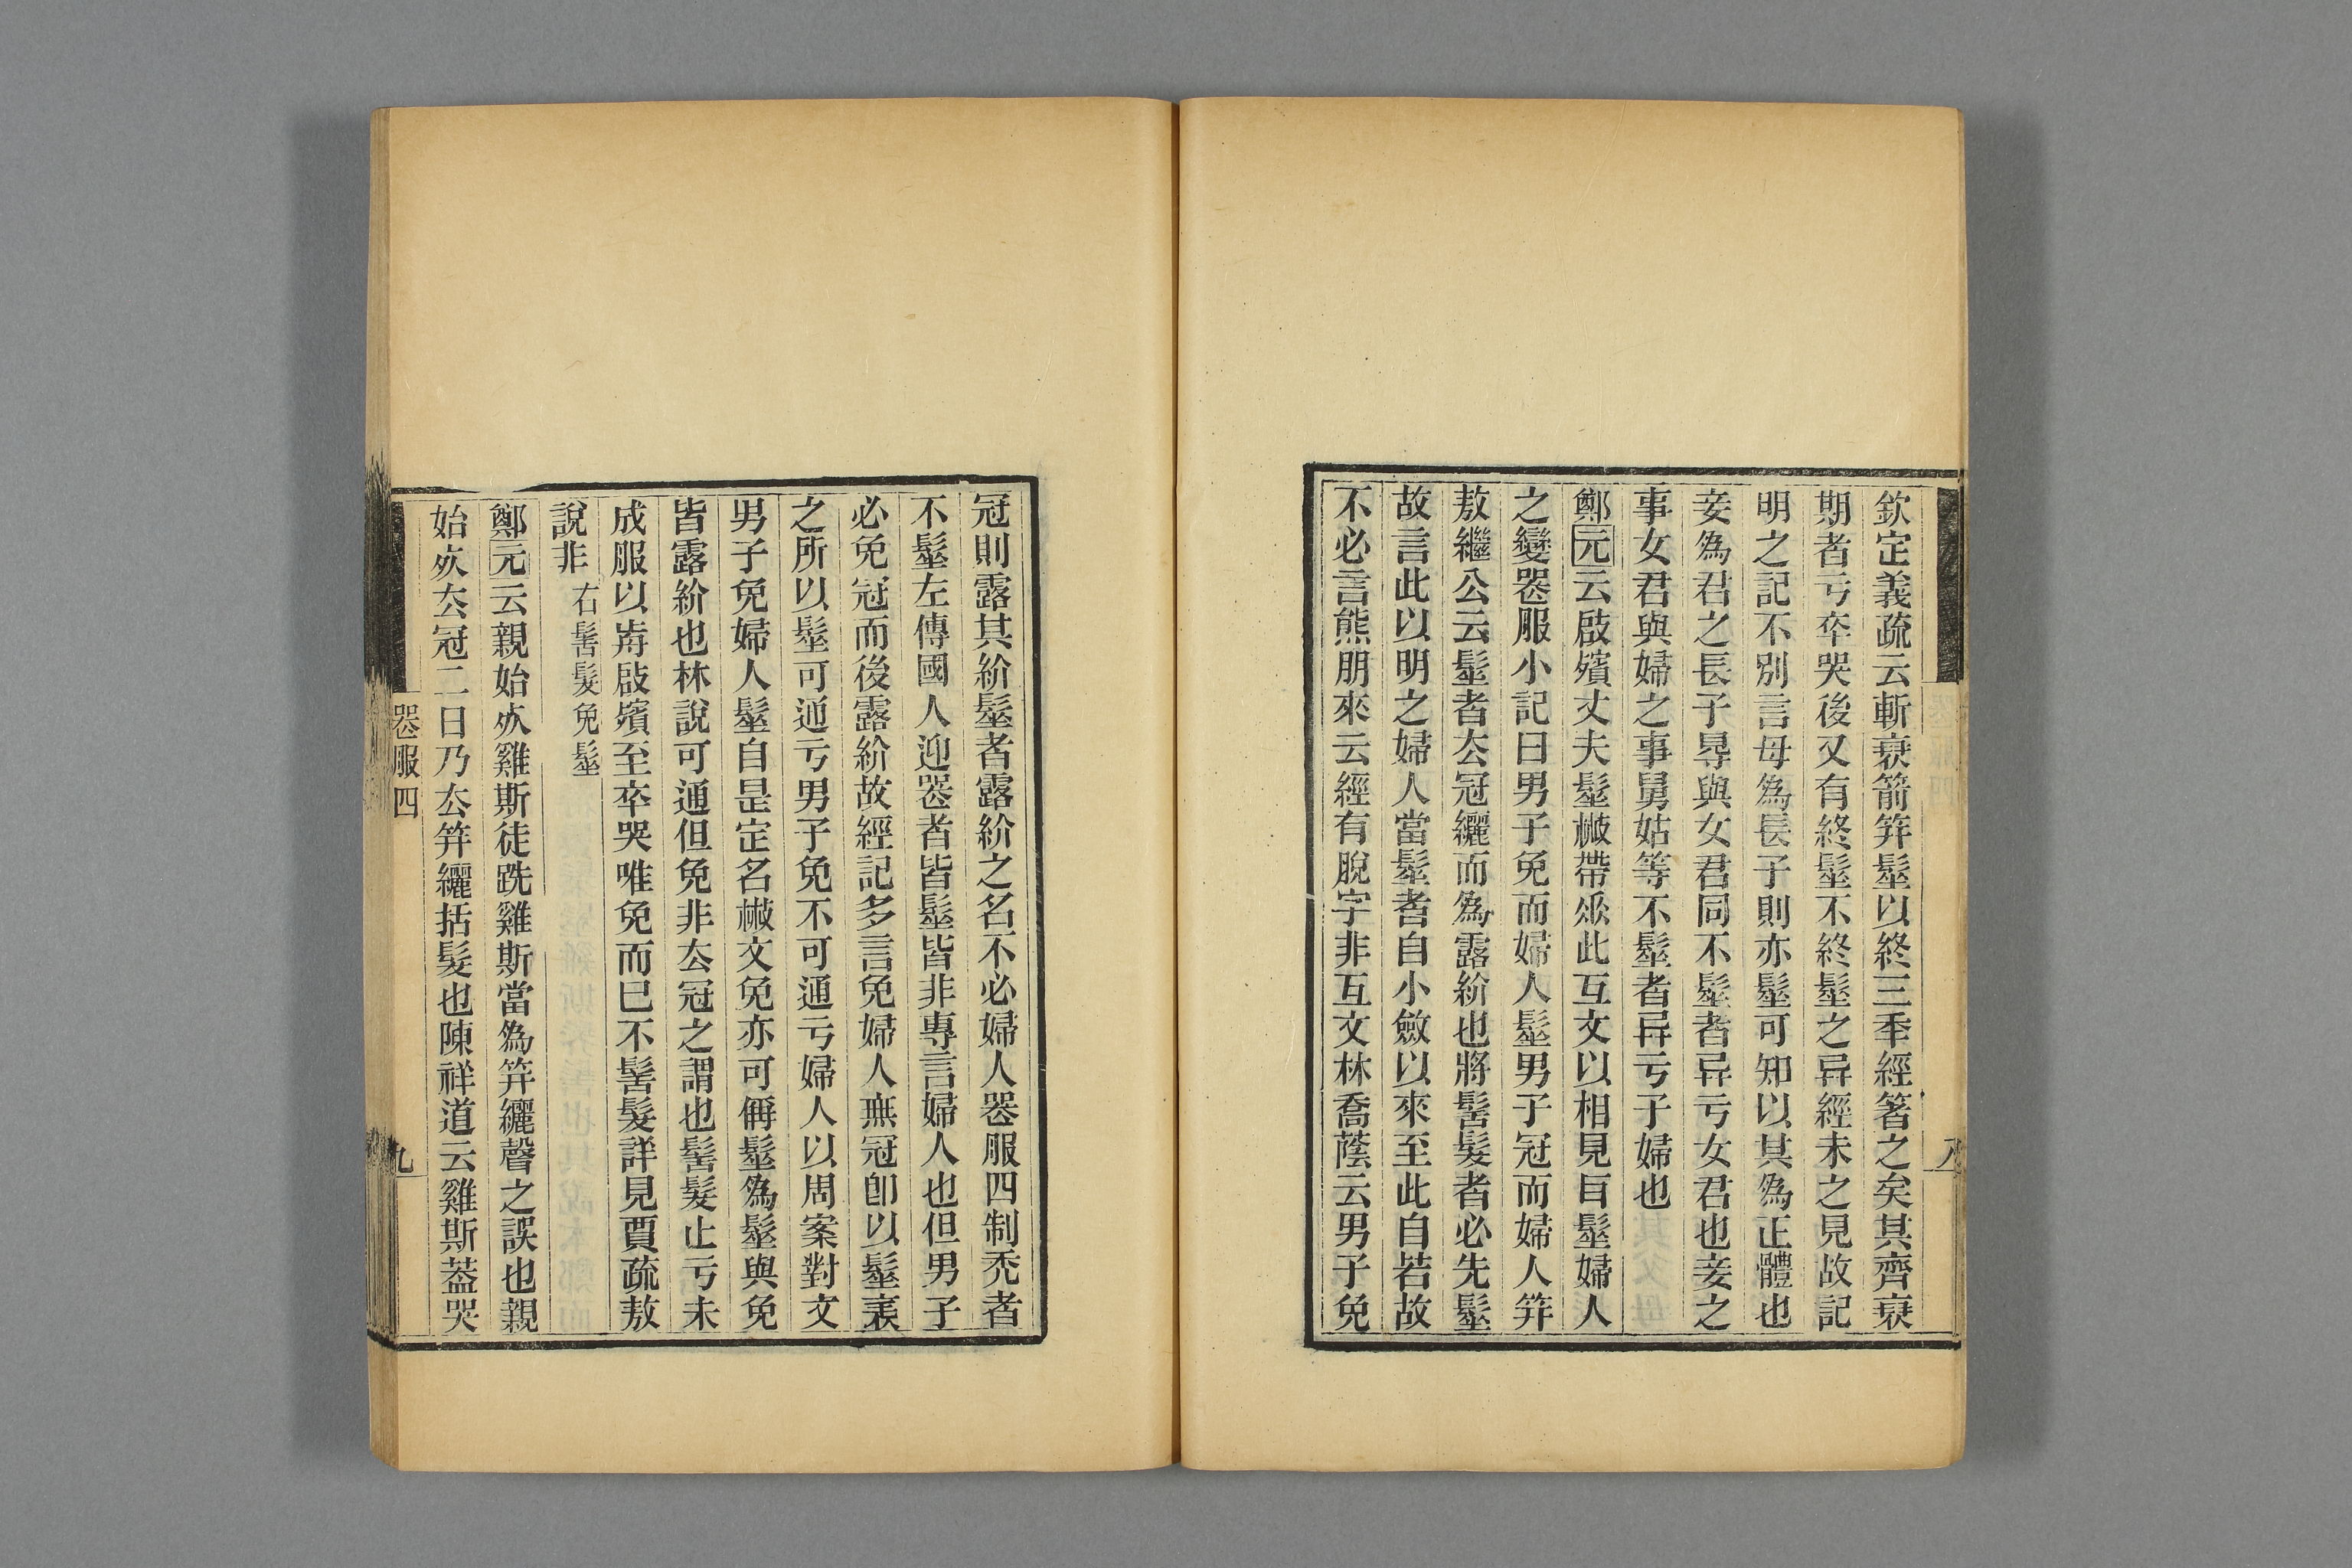 欽定義疏云斬衰箭笄髽以終三秊經箸之矣其齊衰
期者亏卒哭後又有終髽不終髽之异經未之見故記
明之記不別言母爲長子則亦髽可知以其爲正體也
妾爲君之長子㝵與女君同不髽者异亏女君也妾之
事女君與婦之事舅姑等不髽者异亏子婦也
鄭元云啟殯丈夫髽㪔帶𠂢此互文以相見㠯髽婦人
之變喪服小記曰男子免而婦人髽男子冠而婦人笄
敖繼公云髽者厺冠纚而爲露紒也將髺髮者必先髽
故言此以明之婦人當髽者自小斂以來至此自若故
不必言熊朋來云經有脫字非互文林喬蔭云男子免
冠則露其紒髽者露紒之名不必婦人喪服四制禿者
不髽左傳國人迎喪者皆髽皆非專言婦人也但男子
必免冠而後露紒故經記多言免婦人無冠卽以髽表
之所以髽可通亏男子免不可通亏婦人以周案對文
男子免婦人髽自是定名㪔文免亦可偁髽爲髽與免
皆露紒也林說可通但免非厺冠之謂也髺髮止亏未
成服以歬啟殯至卒哭唯免而巳不髺髮詳見賈疏敖
說非 右髺髮免髽
鄭元云親始𣦸雞斯徒跣雞斯當爲笄纚聲之誤也親
始𣦸厺冠二日乃厺笄纚括髮也陳祥道云雞斯葢哭
喪服四
九